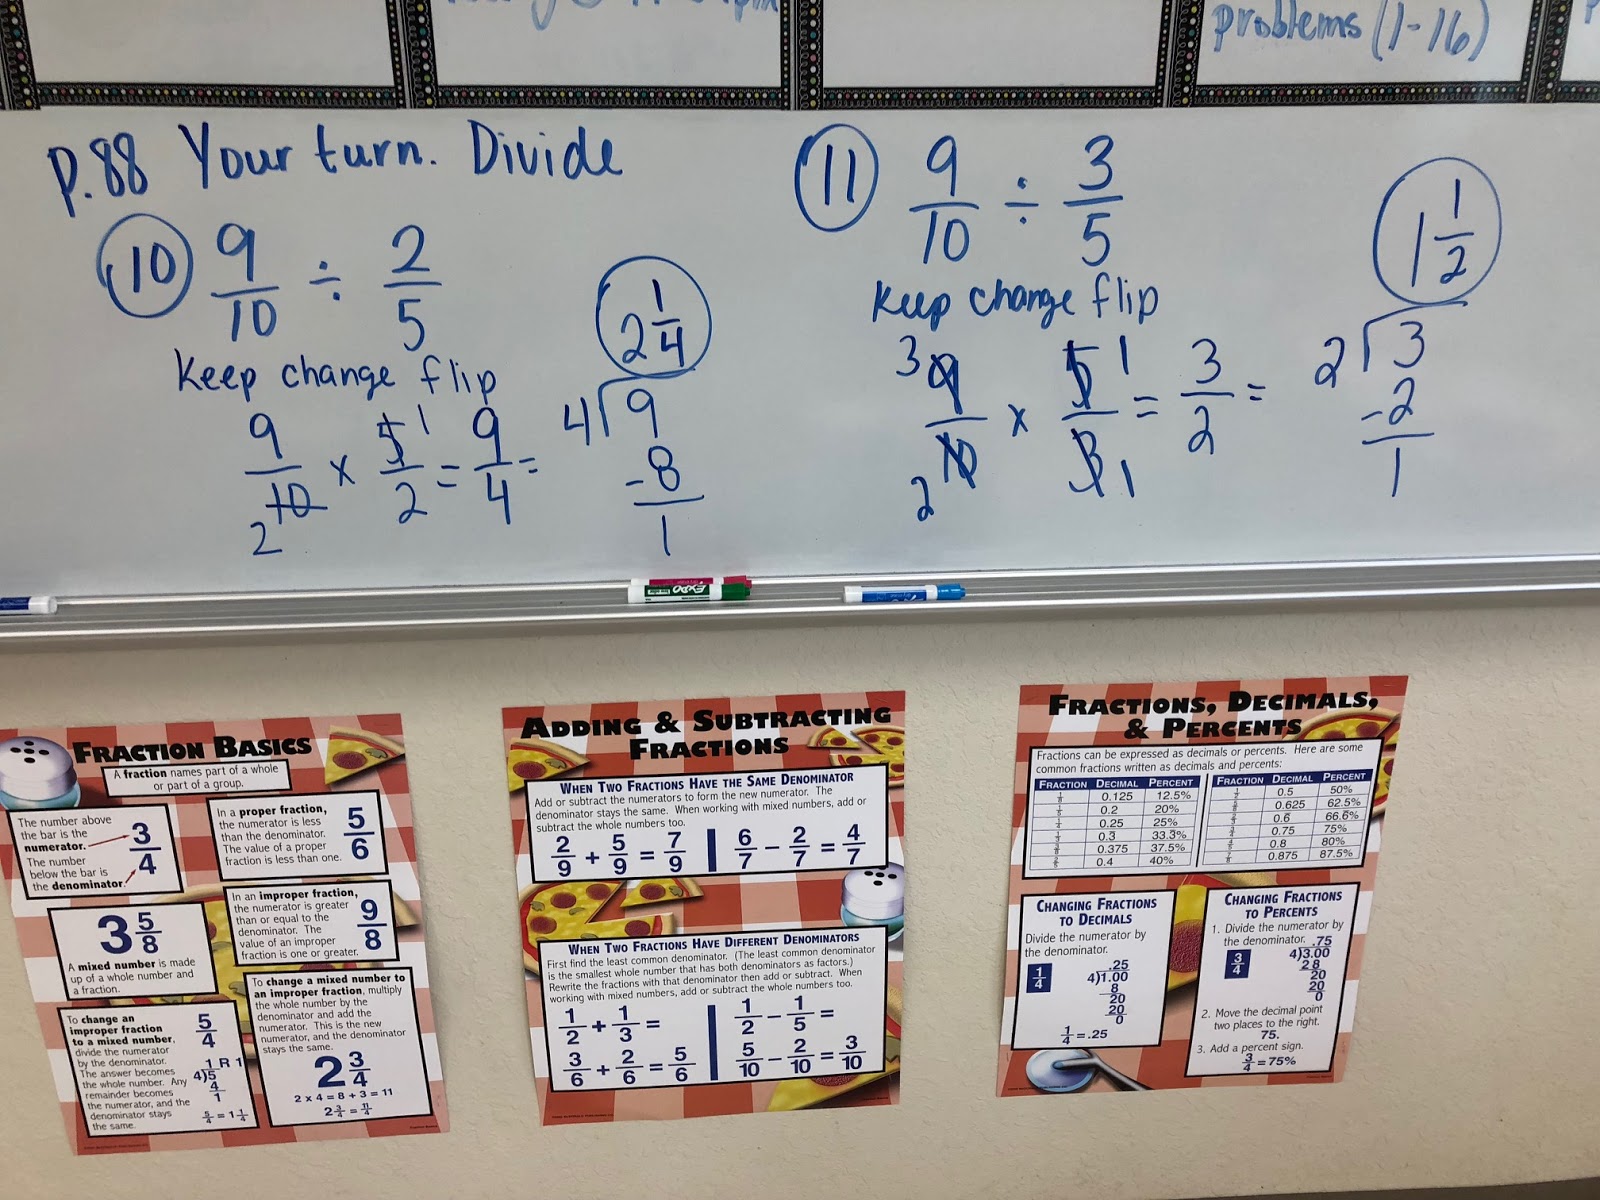 problems (1-16)
P.88 Your turn. Divide
10 9/10 ÷ 2/5
Keep change flip
9/10 2 × 5/2 1 = 9/4 =
2 1/4
4)9
-8
1
11 9/10 ÷ 3/5
Keep change flip
3 9/10 2 × 5/3 1 1 = 3/2 =
1 1/2
2)3
-2
1
EXPO
FRACTION BASICS
A fraction names part of a whole
or part of a group.
The number above
the bar is the
numerator.
The number
below the bar is
the denominator.
3/4
In a proper fraction,
the numerator is less
than the denominator.
The value of a proper
fraction is less than one.
5/6
3 5/8
A mixed number is made
up of a whole number and
a fraction.
In an improper fraction,
the numerator is greater
than or equal to the
denominator. The
value of an improper
fraction is one or greater.
9/8
To change an
improper fraction
to a mixed number,
divide the numerator
by the denominator.
The answer becomes
the whole number. Any
remainder becomes
the numerator, and the
denominator stays
the same.
5/4
1 R 1
4)5
4
1
5/4 = 1 1/4
To change a mixed number to
an improper fraction, multiply
the whole number by the
denominator and add the
numerator. This is the new
numerator, and the denominator
stays the same.
2 3/4
2 x 4 = 8 + 3 = 11
2 3/4 = 11/4
ADDING & SUBTRACTING
FRACTIONS
WHEN TWO FRACTIONS HAVE THE SAME DENOMINATOR
Add or subtract the numerators to form the new numerator. The
denominator stays the same. When working with mixed numbers, add or
subtract the whole numbers too.
2/9 + 5/9 = 7/9 | 6/7 - 2/7 = 4/7
WHEN TWO FRACTIONS HAVE DIFFERENT DENOMINATORS
First find the least common denominator. (The least common denominator
is the smallest whole number that has both denominators as factors.)
Rewrite the fractions with that denominator then add or subtract. When
working with mixed numbers, add or subtract the whole numbers too.
1/2 + 1/3 = | 1/2 - 1/5 =
3/6 + 2/6 = 5/6 | 5/10 - 2/10 = 3/10
FRACTIONS, DECIMALS,
& PERCENTS
Fractions can be expressed as decimals or percents. Here are some
common fractions written as decimals and percents:
FRACTION DECIMAL PERCENT
1/8 0.125 12.5%
1/5 0.2 20%
1/4 0.25 25%
1/3 0.3 33.3%
3/8 0.375 37.5%
2/5 0.4 40%
FRACTION DECIMAL PERCENT
1/2 0.5 50%
5/8 0.625 62.5%
2/3 0.6 66.6%
3/4 0.75 75%
4/5 0.8 80%
7/8 0.875 87.5%
CHANGING FRACTIONS
TO DECIMALS
Divide the numerator by
the denominator.
1/4
.25
4)1.00
8
20
20
0
1/4 = .25
CHANGING FRACTIONS
TO PERCENTS
1. Divide the numerator by
the denominator.
3/4
.75
4)3.00
28
20
20
0
2. Move the decimal point
two places to the right.
75.
3. Add a percent sign.
3/4 = 75%